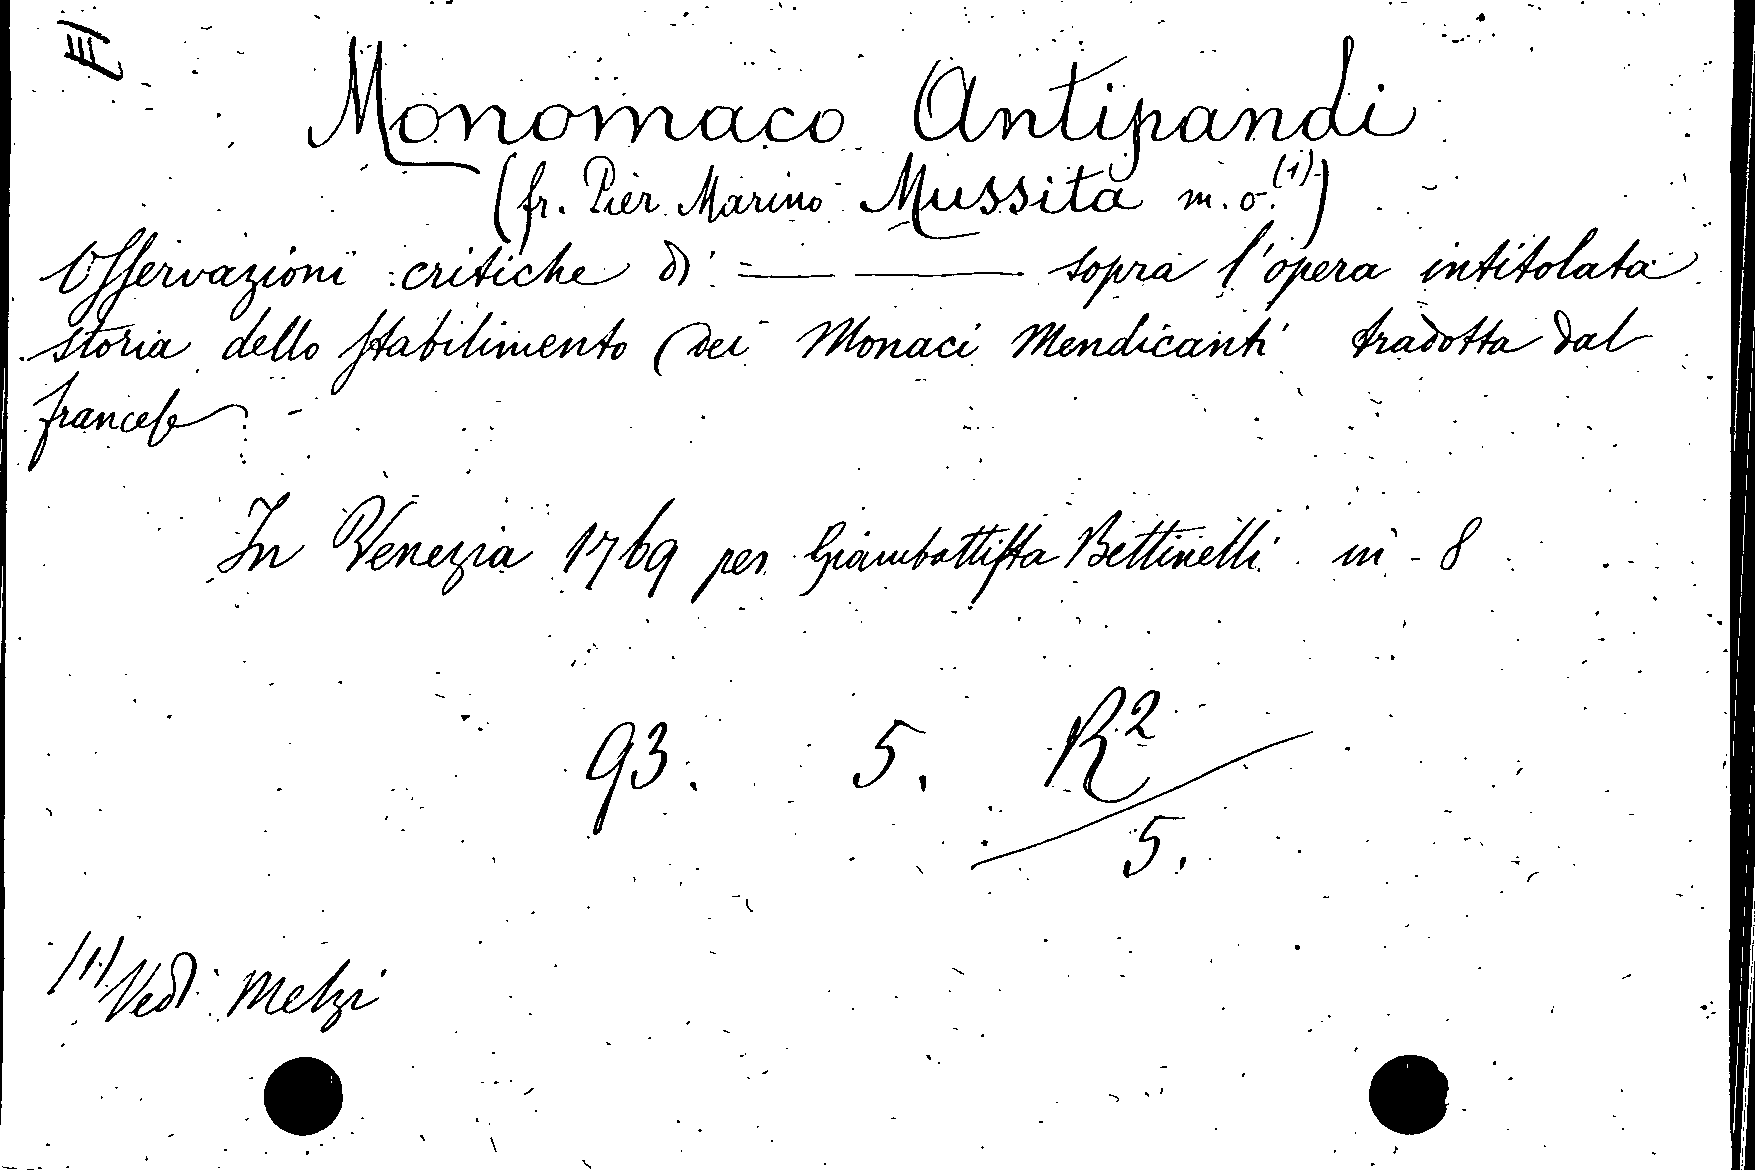 Monomaco Antipandi
(fr. Pier Marino Mussita m. o. (1))
Osservazioni critiche di — — sopra l'opera intitolata
storia dello stabilimento dei Monaci Mendicanti tradotta dal
francese
In Venezia 1769 per Giambattista Bettinelli in - 8
93. 5. R2
5.
(1) Vedi Melzi